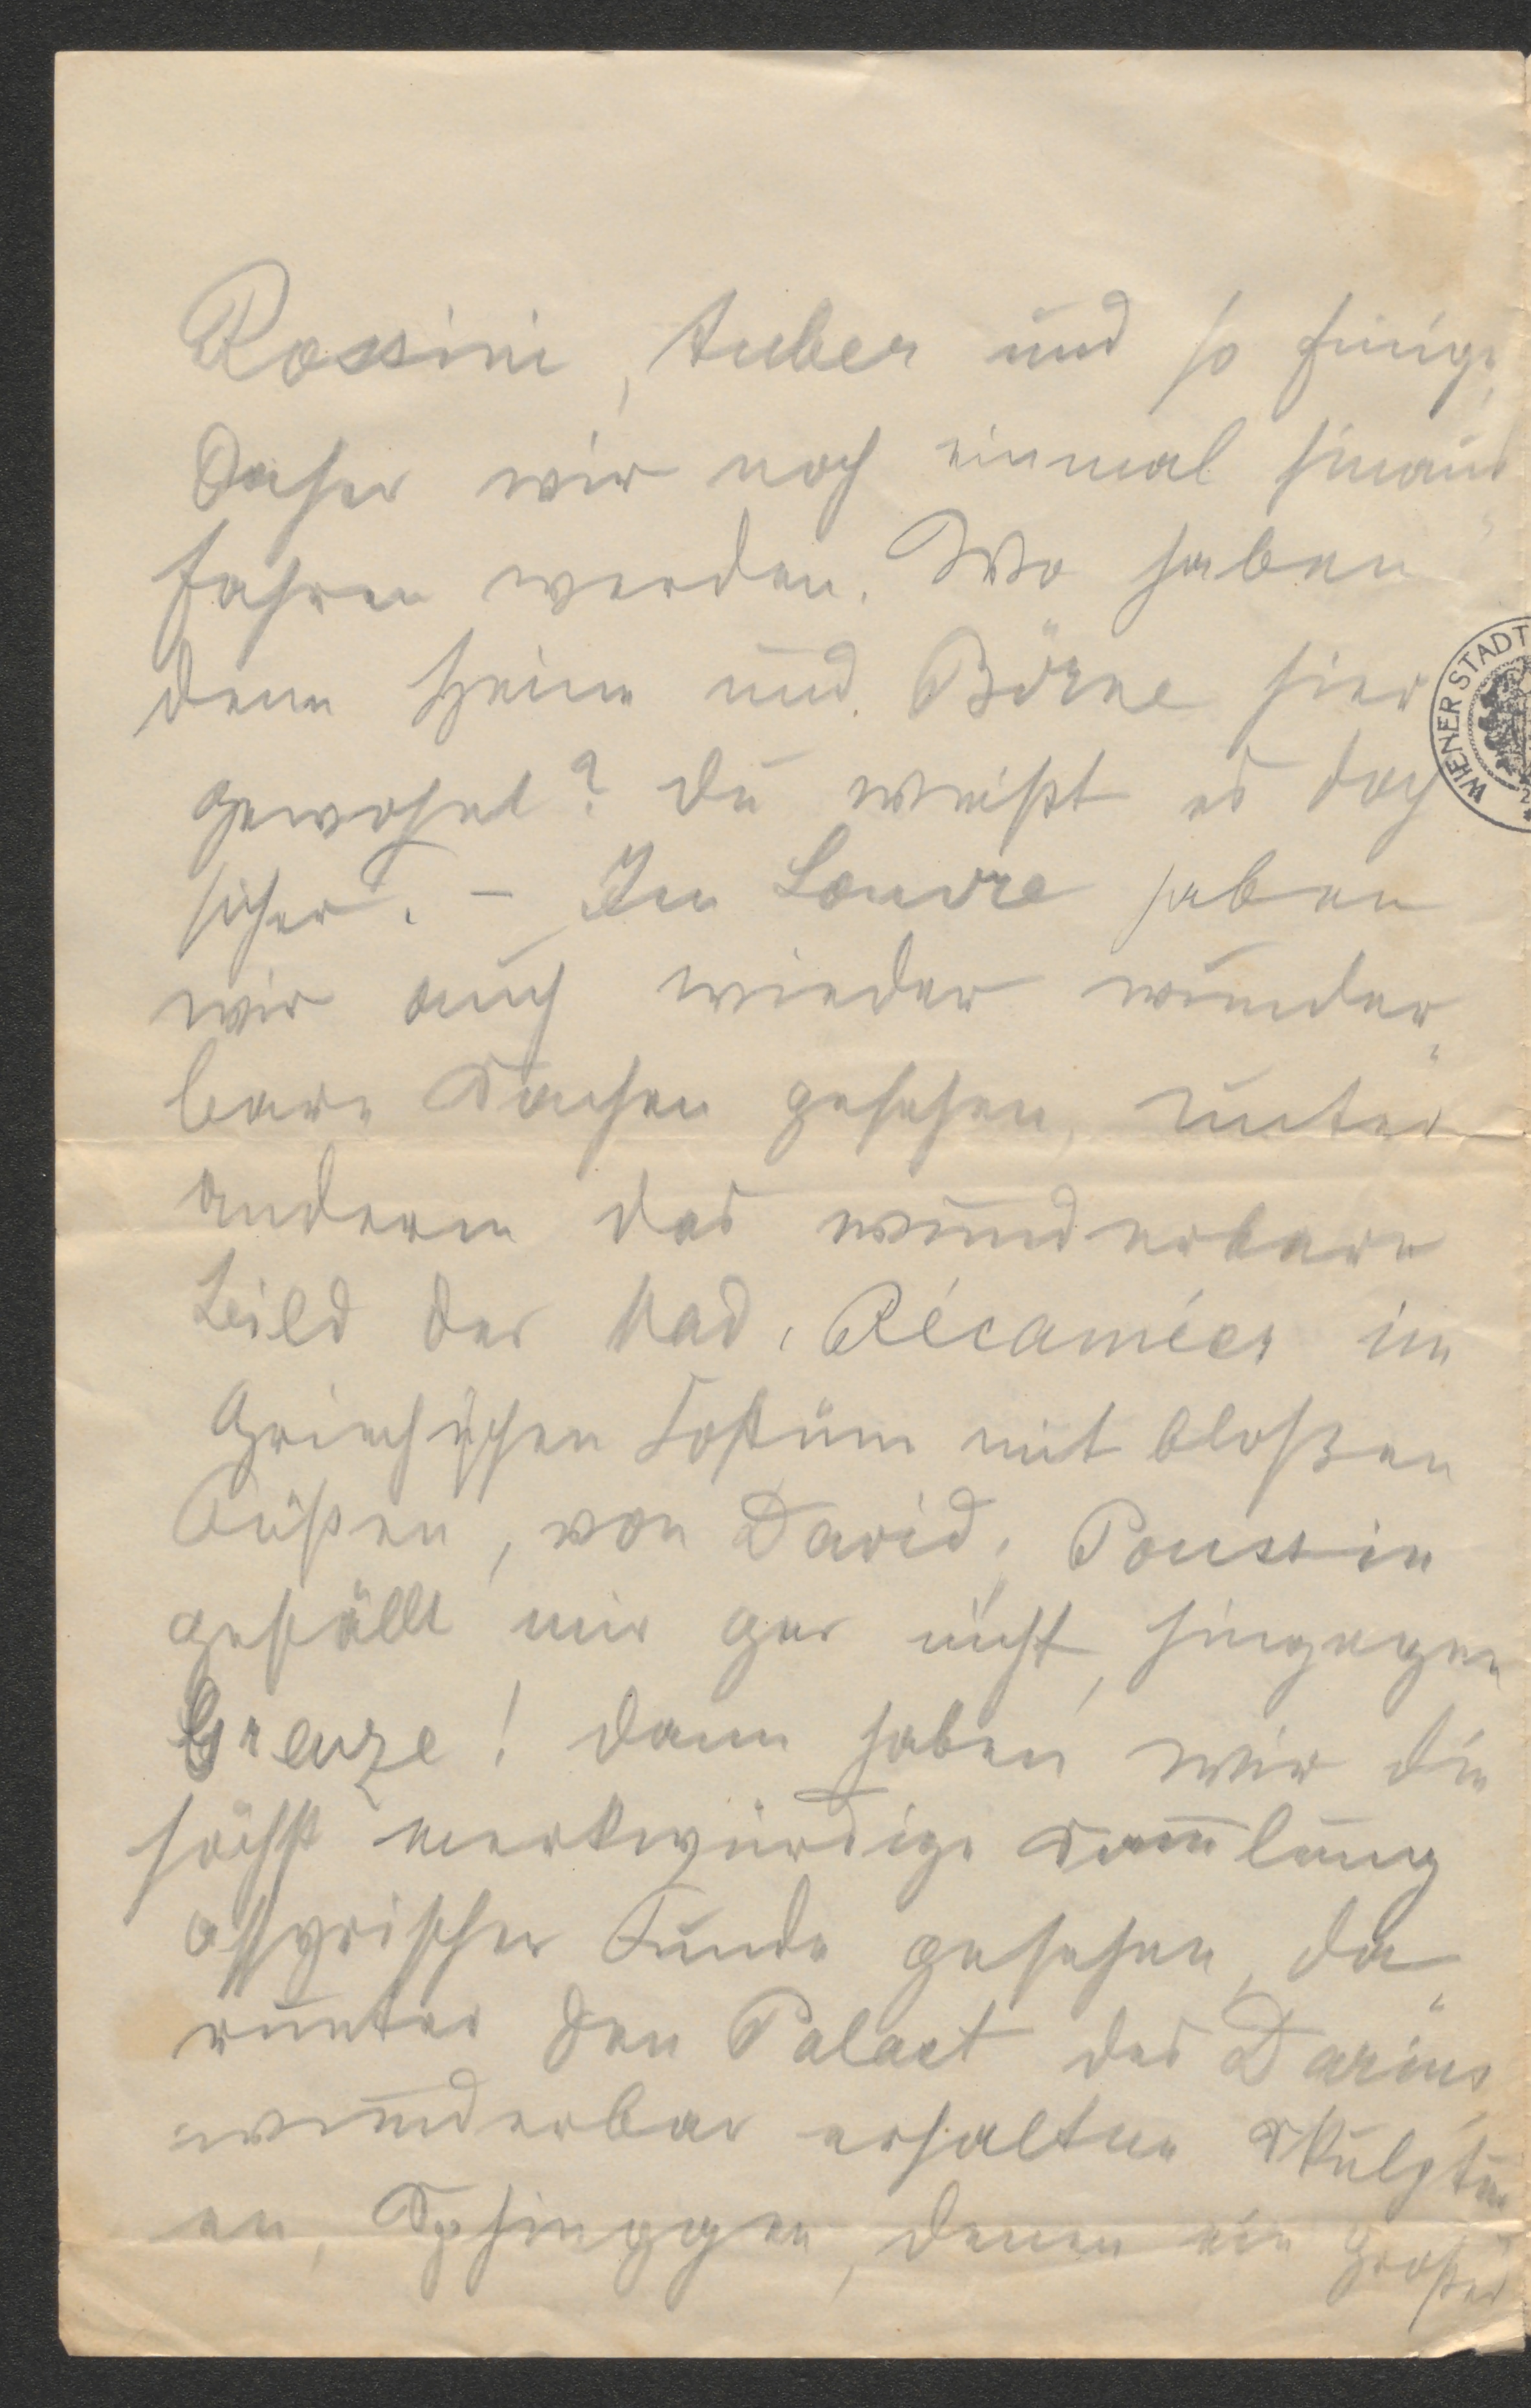 Rossini, Auber und so einige,
Daher wir noch einmal hinaus
fahren werden. Wo haben
denn Heine und Börne hier
gewohnt? Du weißt es doch
sicher. – Im Louvre haben
wir auch wieder wunder-
bare Sachen gesehen, unter
anderem das wunderbare
Bild der Mad. Récamiér im
griechischen Kostüm mit bloßen
Füßen, von David; Poussin
gefällt mir gar nicht, hingegen
Greuze! dann haben wir die
höchst merkwürdige Sammlung
assyrischer Funde gesehen, da-
runter den Palast des Darius,
wunderbar erhaltene Skulptur
en, Sphinxxen, denen ein großer
WIENER STADT